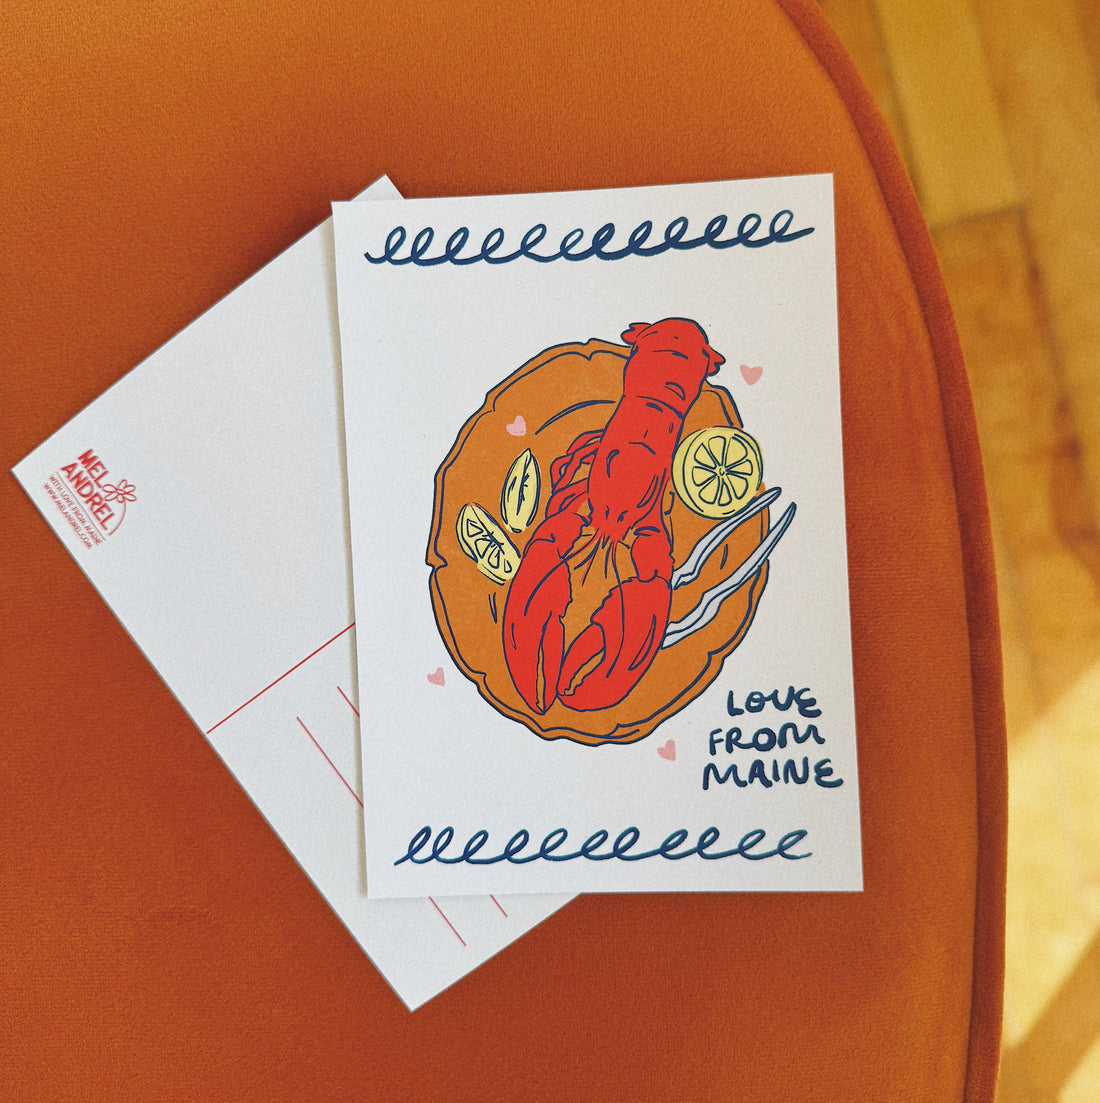 LOVE
FROM
MAINE
MEL
ANDREL
WITH LOVE FROM MAINE
WWW.MELANDREL.COM